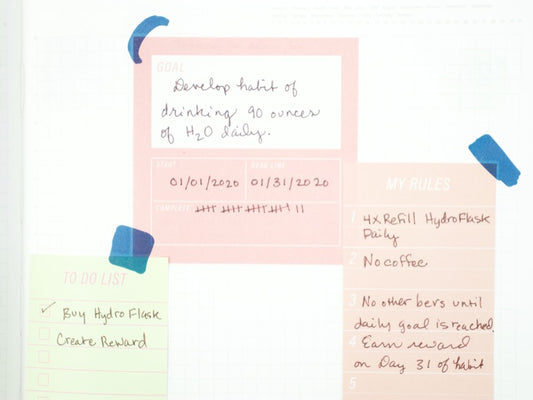 GOAL
Develop habit of
drinking 90 ounces
of H₂O daily.
START
DEAD LINE
01/01/2020
01/31/2020
COMPLETE
MY RULES
1 4x Refill HydroFlask
Daily
2 No coffee
3 No other bevs until
daily goal is reached.
4 Earn reward
on Day 31 of habit
5
TO DO LIST
✓ Buy HydroFlask
Create Reward